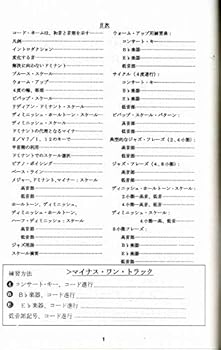 目次
コード・ネームは、和音と音階を示す
凡例
イントロダクション
変化する音
解決に向わないドミナント
ブルース・スケール
ウォーム・アップ
4度の輪、解説
ビバップ・スケール
リディアン・ドミナント・スケール
ディミニッシュ・ホールトーン・スケール
ディミニッシュ・スケール
ドミナントの代理となるマイナー
ドミナントでのスケール選択
ピアノ・ボイシング
ベース・ライン
メジャー、ドミナント、マイナー・スケール
高音部
低音部
ホールトーン、ディミニッシュ、
ディミニッシュ・ホールトーン、
ハーフ・ディミニッシュ・スケール
高音部
低音部
ジャズ用語
スケール演習
ウォーム・アップ用練習表：
コンサート・キー
B♭楽器
E♭楽器
低音部
サイクル（4度進行）：
コンサート・キー
B♭楽器
E♭楽器
低音部
ビバップ・スケール・パターン：
高音部
低音部
典型的なジャズ・フレーズ（2、4小節）
高音部
低音部
ジャズ・フレーズ（4、8小節）：
高音部
低音部
ディミニッシュ・ホールトーン・スケール：
2小節―高音、低音
4小節―高音、低音
ディミニッシュ・スケール：
4小節―高、低音
8小節フレーズ：
高音部
B♭楽器
E♭楽器
低音部
1
練習方法
＞マイナス・ワン・トラック
A コンサート・キー、コード進行
B B♭楽器、コード進行
E♭楽器、コード進行
低音部記号、コード進行